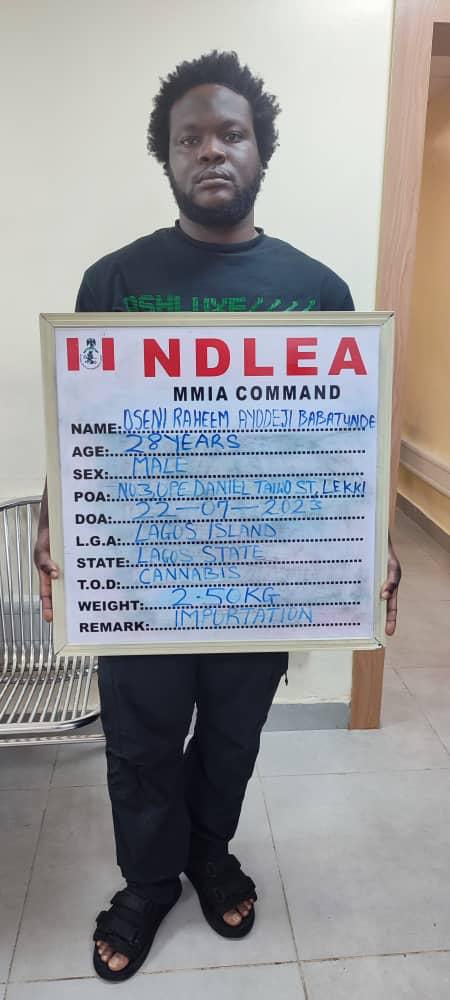 OSHLUXE////
NDLEA
MMIA COMMAND
NAME: OSENI RAHEEM AYODEJI BABATUNDE
AGE: 28 YEARS
SEX: MALE
POA: NO 3, OPE DANIEL TAIWO ST, LEKKI
DOA: 22-07-2023
L.G.A: LAGOS ISLAND
STATE: LAGOS STATE
T.O.D: CANNABIS
WEIGHT: 2.50KG
REMARK: IMPORTATION